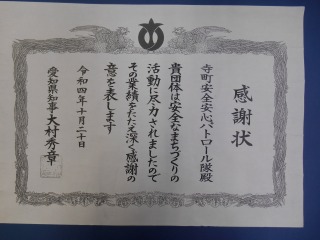 感謝状
寺町安全安心パトロール隊殿
貴団体は安全なまちづくりの
活動に尽力されましたので
その業績をたたえ深く感謝の
意を表します
令和四年十月二十日
愛知県知事大村秀章